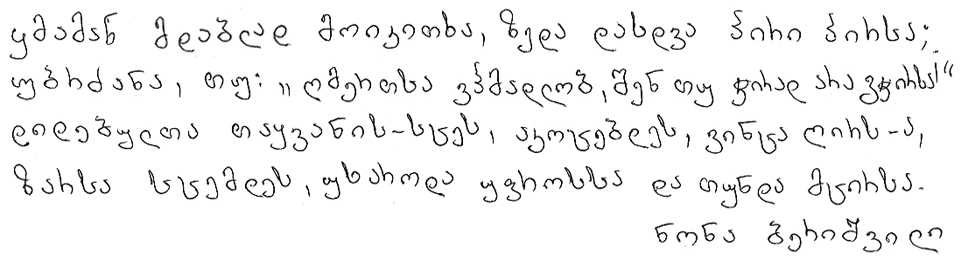 ყმამან მდაბლად მოიკითხა, ზედა დასდვა პირი პირსა;
უბრძანა, თუ: „ღმერთსა ვჰმადლობ, შენ თუ ჭირად არა გჭირსა!“
დიდებულთა თაყვანის-სცეს, აკოცებდეს, ვინცა ღირს-ა,
ზარსა სცემდეს, უხაროდა უფროსსა და თუნდა მცირსა.
ნონა ბერიშვილი